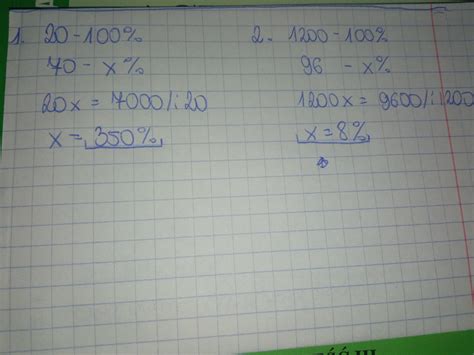 1. 20 - 100%
70 - x%
20x = 7000 /:20
x = 350%
2. 1200 - 100%
96 - x%
1200x = 9600 /:1200
x = 8%